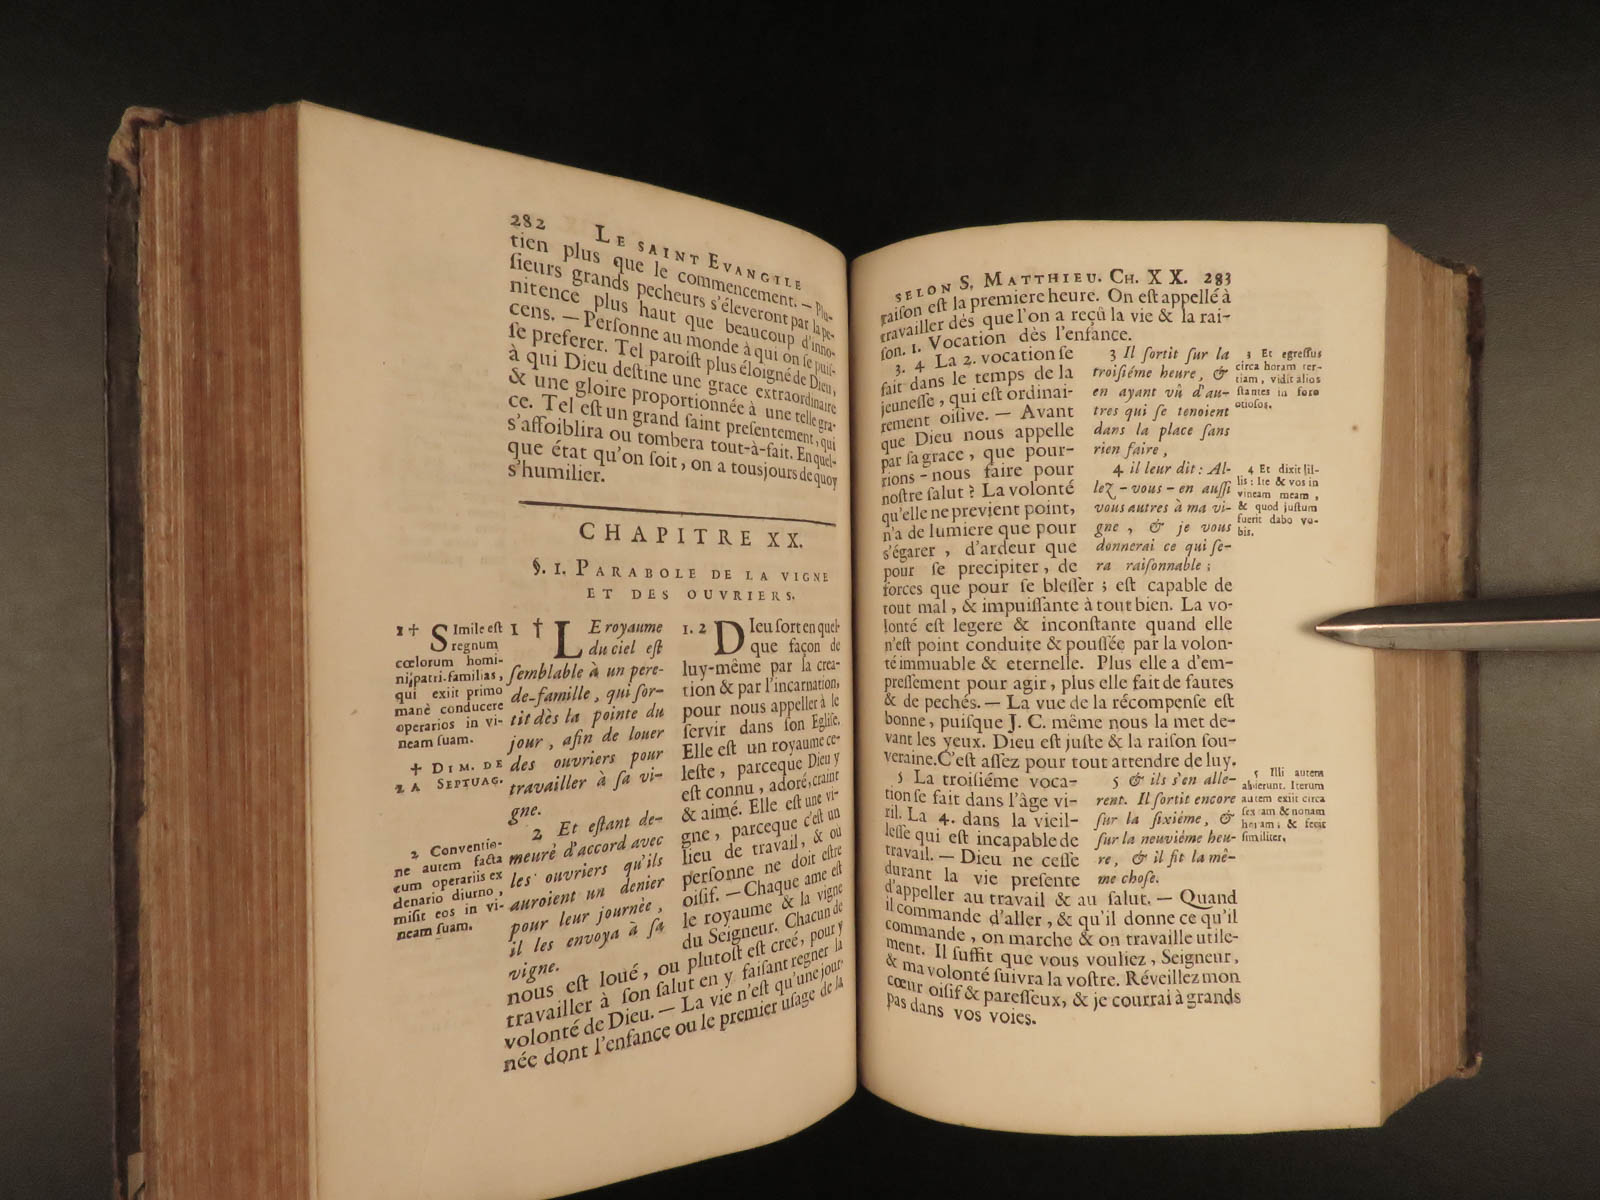 282 LE SAINT EVANGILE
tien plus que le commencement. — Plu-
ſieurs grands pecheurs s'éleveront par la pe-
nitence plus haut que beaucoup d'inno-
cens. — Perſonne au monde à qui on ſe puiſ-
ſe preferer. Tel paroiſt plus éloigné de Dieu,
à qui Dieu deſtine une grace extraordinaire
& une gloire proportionnée à une telle gra-
ce. Tel eſt un grand ſaint preſentement, qui
s'affoiblira ou tombera tout-à-fait. En quel-
que état qu'on ſoit, on a tousjours de quoy
s'humilier.
CHAPITRE XX.
§. 1. PARABOLE DE LA VIGNE
ET DES OUVRIERS.
1 † SImile eſt
regnum
cœlorum homi-
ni patri-familias,
qui exiit primo
manè conducere
operarios in vi-
neam ſuam.
† DIM. DE
LA SEPTUAG.
2 Conventio-
ne autem facta
cum operariis ex
denario diurno,
miſit eos in vi-
neam ſuam.
1 † LE royaume
du ciel eſt
ſemblable à un pere-
de-famille, qui ſor-
tit dès la pointe du
jour, afin de louer
des ouvriers pour
travailler à ſa vi-
gne.
2 Et eſtant de-
meuré d'accord avec
les ouvriers qu'ils
auroient un denier
pour leur journée,
il les envoya à ſa
vigne.
1. 2 DIeu ſort en quel-
que façon de
luy-même par la crea-
tion & par l'incarnation,
pour nous appeller à le
ſervir dans ſon Egliſe.
Elle eſt un royaume ce-
leſte, parceque Dieu y
eſt connu, adoré, craint
& aimé. Elle eſt une vi-
gne, parceque c'eſt un
lieu de travail, & où
perſonne ne doit eſtre
oiſif. — Chaque ame eſt
le royaume & la vigne
du Seigneur. Chacun de
nous eſt loué, ou plutoſt eſt creé, pour y
travailler à ſon ſalut en y faiſant regner la
volonté de Dieu. — La vie n'eſt qu'une jour-
née dont l'enfance ou le premier uſage de la
SELON S. MATTHIEU. CH. XX. 283
raiſon eſt la premiere heure. On eſt appellé à
travailler dès que l'on a reçû la vie & la rai-
ſon. 1. Vocation dès l'enfance.
3. 4 La 2. vocation ſe
fait dans le temps de la
jeuneſſe, qui eſt ordinai-
rement oiſive. — Avant
que Dieu nous appelle
par ſa grace, que pour-
rions-nous faire pour
noſtre ſalut? La volonté
qu'elle ne previent point,
n'a de lumiere que pour
s'égarer, d'ardeur que
pour ſe precipiter, de
3 Il ſortit ſur la
troiſiéme heure, &
en ayant vû d'au-
tres qui ſe tenoient
dans la place ſans
rien faire,
4 il leur dit: Al-
lez-vous-en auſſi
vous autres à ma vi-
gne, & je vous
donnerai ce qui ſe-
ra raiſonnable;
3 Et egreſſus
circa horam ter-
tiam, vidit alios
ſtantes in foro
otioſos.
4 Et dixit il-
lis: Ite & vos in
vineam meam,
& quod juſtum
fuerit dabo vo-
bis.
forces que pour ſe bleſſer; eſt capable de
tout mal, & impuiſſante à tout bien. La vo-
lonté eſt legere & inconſtante quand elle
n'eſt point conduite & pouſſée par la volon-
té immuable & eternelle. Plus elle a d'em-
preſſement pour agir, plus elle fait de fautes
& de pechés. — La vue de la récompenſe eſt
bonne, puiſque J. C. même nous la met de-
vant les yeux. Dieu eſt juſte & la raiſon ſou-
veraine. C'eſt aſſez pour tout attendre de luy.
5 La troiſiéme voca-
tion ſe fait dans l'âge vi-
ril. La 4. dans la vieil-
leſſe qui eſt incapable de
travail. — Dieu ne ceſſe
durant la vie preſente
5 & ils s'en alle-
rent. Il ſortit encore
ſur la ſixiéme, &
ſur la neuviéme heu-
re, & il fit la mê-
me choſe.
5 Illi autem
abierunt. Iterum
autem exiit circa
ſextam & nonam
horam: & fecit
ſimiliter.
d'appeler au travail & au ſalut. — Quand
il commande d'aller, & qu'il donne ce qu'il
commande, on marche & on travaille utile-
ment. Il ſuffit que vous vouliez, Seigneur,
& ma volonté ſuivra la voſtre. Réveillez mon
cœur oiſif & pareſſeux, & je courrai à grands
pas dans vos voies.